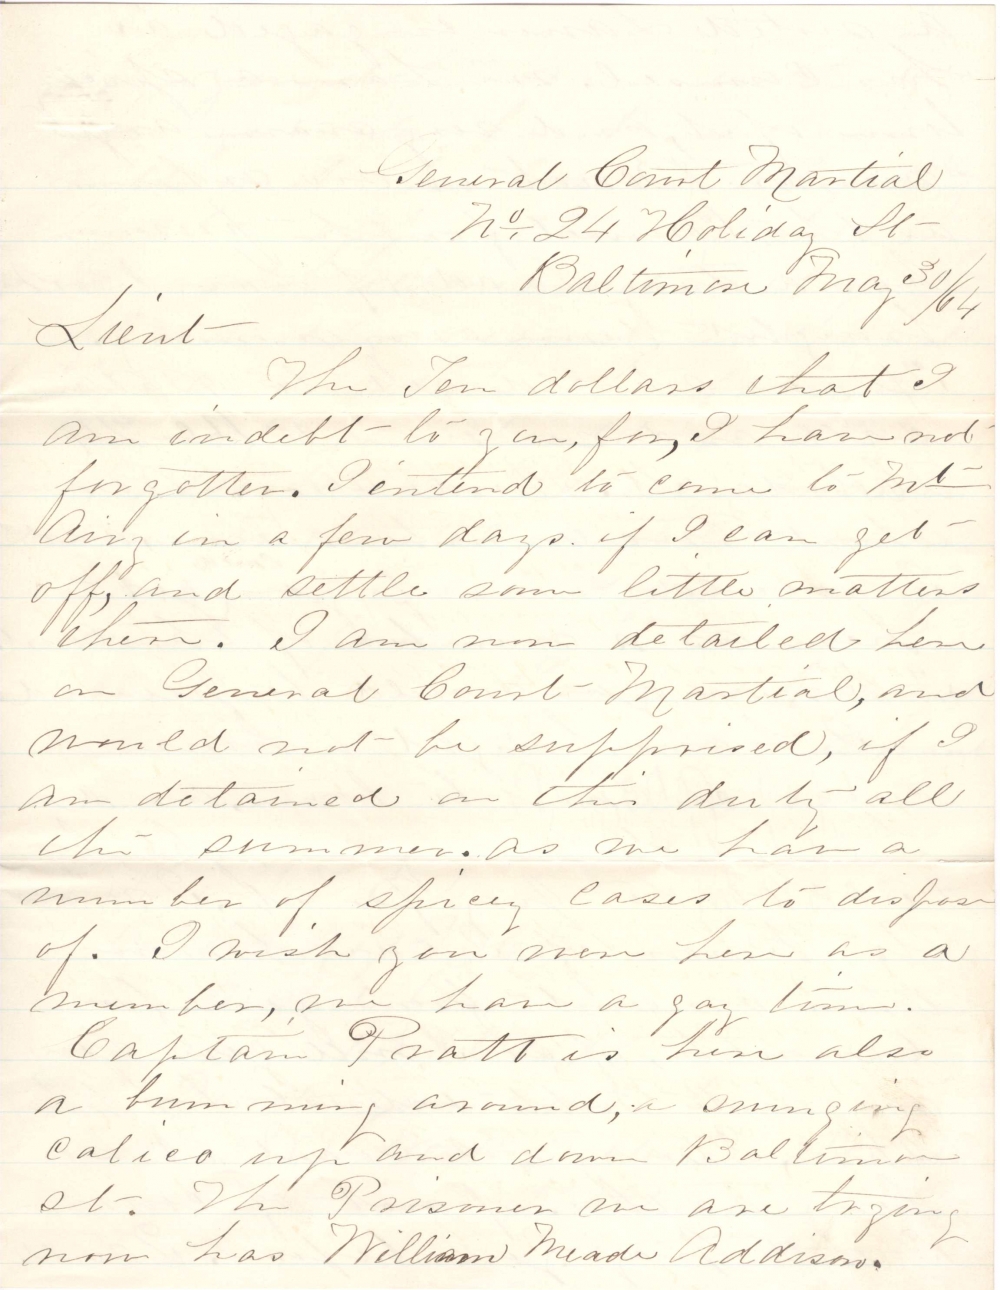 General Court Martial
No. 24 Holiday St
Baltimore May 30/64
Lieut
The Ten dollars that I
am indebt to you, for, I have not
forgotten. I intend to come to Mt
Airy in a few days. if I can get
off, and settle some little matters
there. I am now detailed here
on General Court Martial, and
would not be supprised, if I
am detained on this duty all
the summer. as we have a
number of spicey cases to dispose
of. I wish you were here as a
member, we have a gay time.
Captain Pratt is here also
a bumming around, a swinging
calico up and down Baltimore
st. The Prisoner we are trying
now has William Meade Addison.